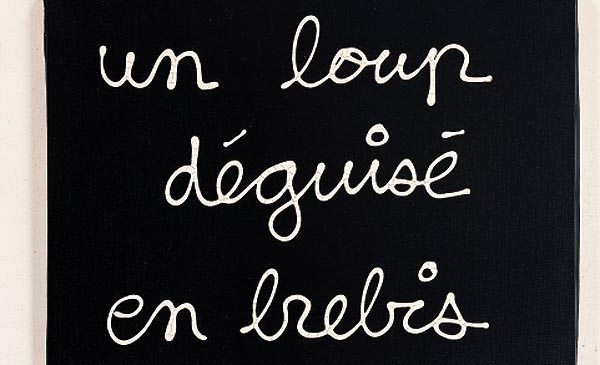 un loup
déguisé
en brebis